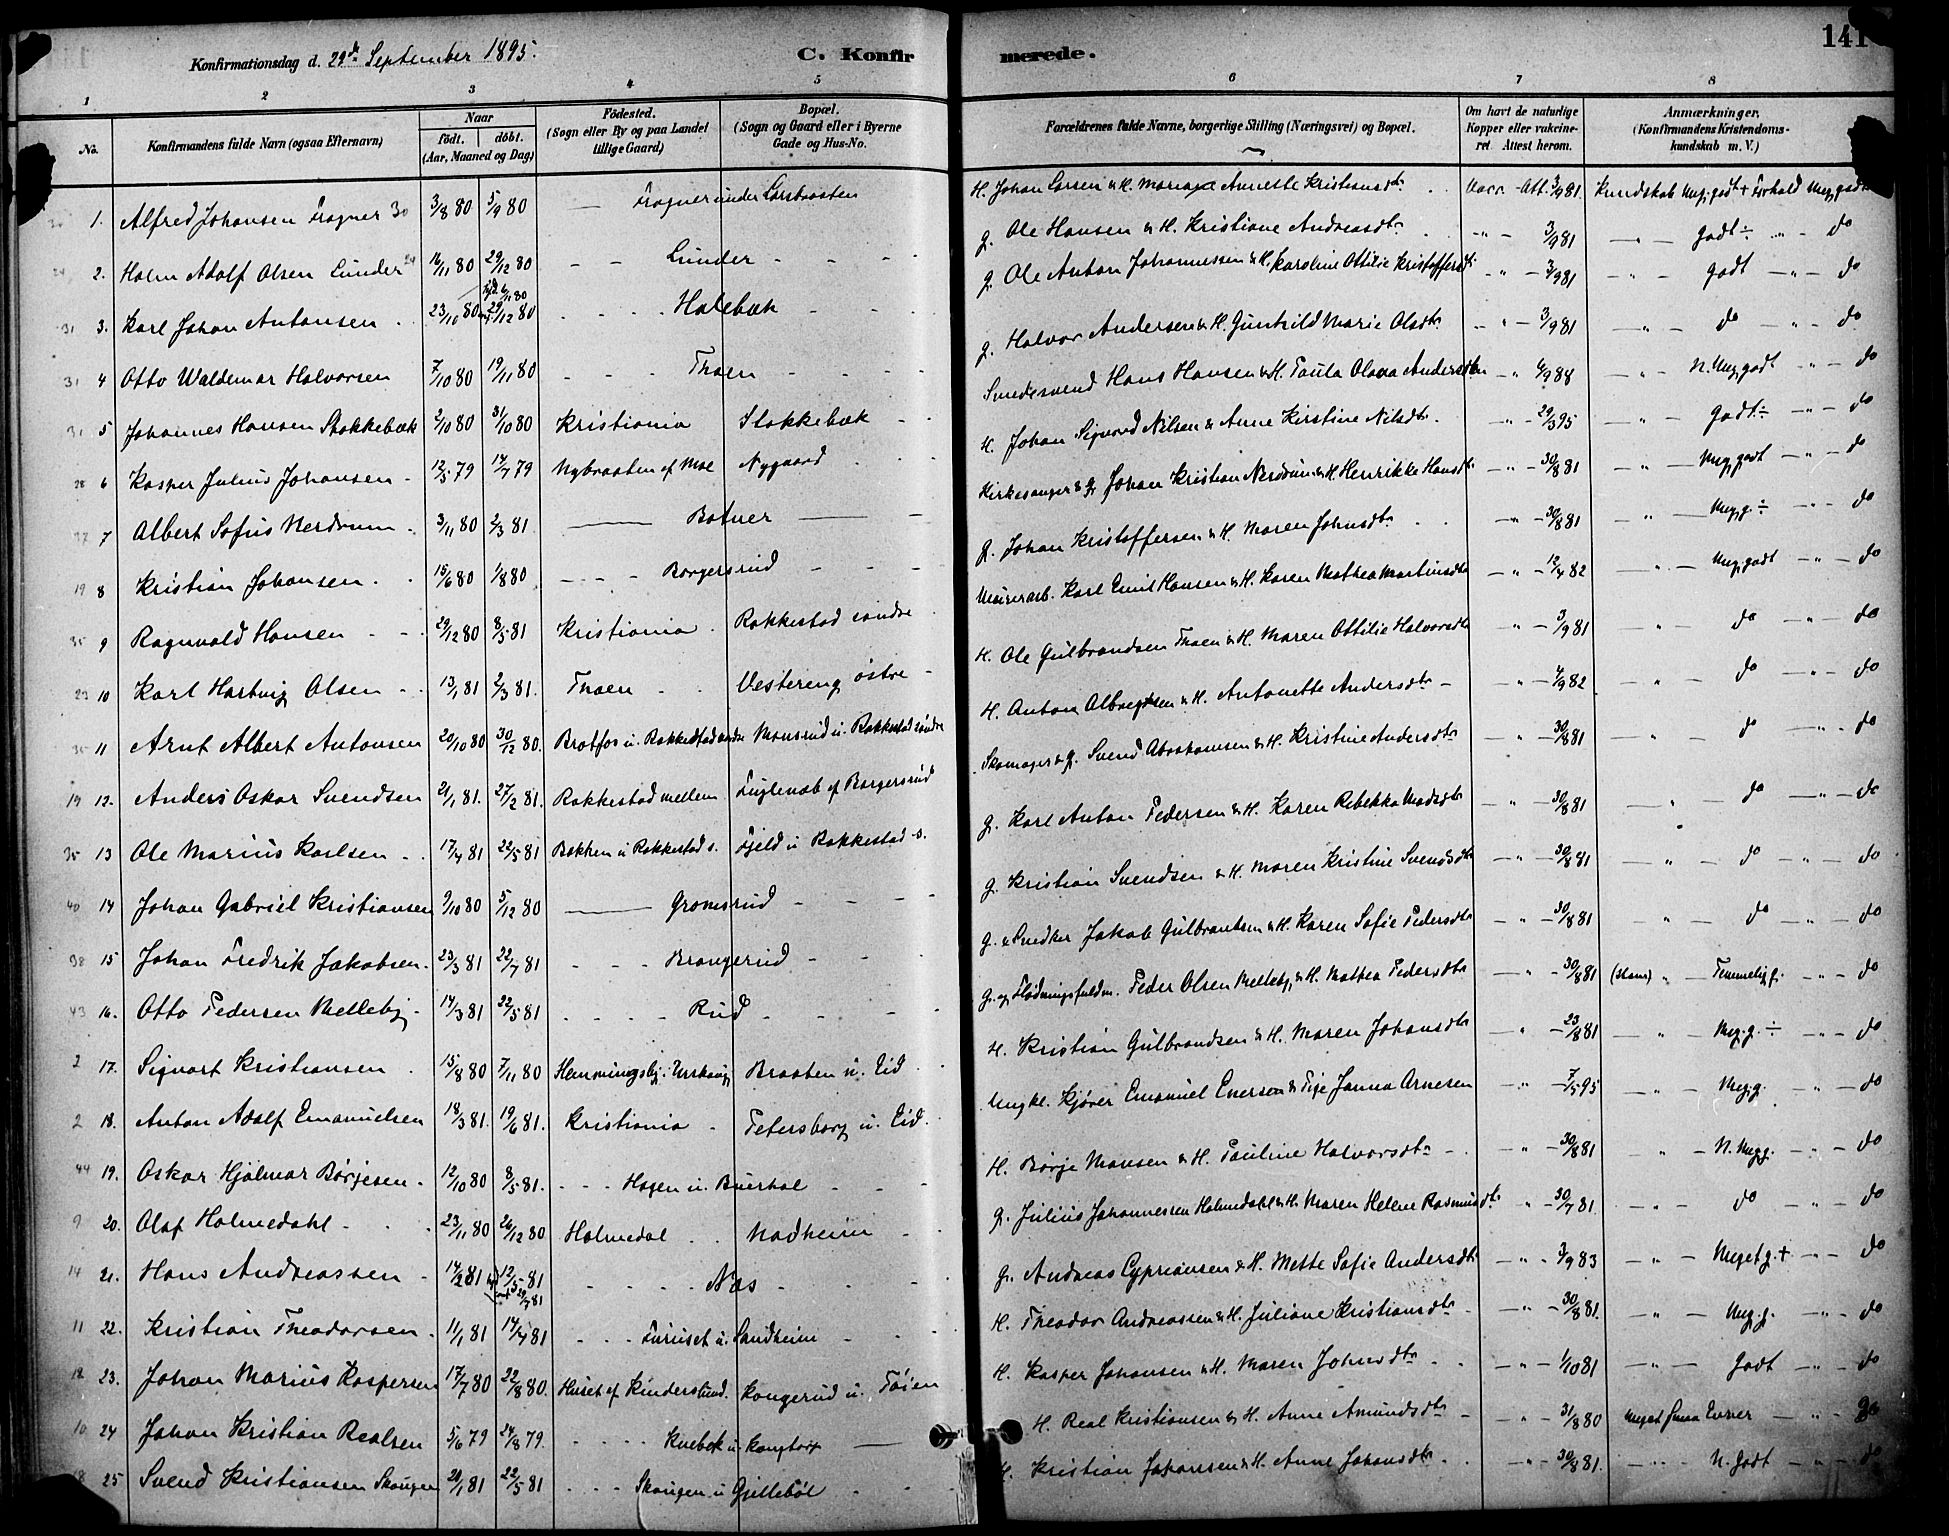 141
Konfirmationsdag d. 29de September 1895. C. Konfirmerede.
1 2 3 4 5 6 7 8
No. Konfirmandens fulde Navn (ogsaa Efternavn) Naar födt. döbt. (Aar, Maaned og Dag) Födested. (Sogn eller By og paa Landet tillige Gaard) Bopæl. (Sogn og Gaard eller i Byerne Gade og Hus-No. Forældrenes fulde Navne, borgerlige Stilling (Næringsvei) og Bopæl. Om havt de naturlige Kopper eller vakcineret. Attest herom. Anmærkninger. (Konfirmandens Kristendomskundskab m. V.)
1. Alfred Johansen Fragner 30 3/8 80 5/9 80 — Fragner under Larsbraaten H. Johan Larsen & H. Mariane Annette Kristiansdtr Vacc. Att. 3/9 81 Kundskab Meg. godt + Forhold Meg. godt
2. Holm Adolf Olsen Lunder 24 16/11 80 29/12 80 Lunder g. Ole Hansen & H. Kristiane Andreasdtr 3/9 81 godt ÷ do
31 3. Karl Johan Antonsen 23/10 80 29/12 80 Holebæk g. Ole Anton Johannessen & H. Karoline Ottilie Kristoffersdtr 3/9 81 godt do
31 4 Otto Waldemar Halvorsen 7/10 80 19/11 80 Thoen g. Halvor Andersen & H. Gunhild Marie Olsdtr 3/9 81 do do
31 5 Johannes Hansen Stokkebæk 2/10 80 31/10 80 Kristiania Stokkebæk Smedesvend Hans Hansen & H. Paula Olava Andersdtr 4/9 84 N. Meg. godt do
28 6 Kasper Julius Johansen 12/5 79 14/7 79 Nybraaten af Moe Nygaard H. Johan Sigvard Nilsen & Anne Kirstine Nilsdtr 29/3 95 godt ÷ do
37 7 Albert Sofus Nerdrum 3/11 80 2/3 81 Botner Kirkesanger & g. Johan Kristian Nerdrum & H. Henrikke Hansdtr 30/8 81 Meg. godt do
19 8 Kristian Johansen 15/6 80 1/8 80 Borgersrud g. Johan Kristoffersen & H. Maren Johnsdtr 30/8 81 Meg. g. ÷ do
35 9 Ragnvald Hansen 29/12 80 8/5 81 Kristiania Rakkestad søndre Murerarb. Karl Emil Hansen & H. Karen Mathea Martinsdtr 12/4 82 Meg. godt do
23 10 Karl Hartvig Olsen 13/1 81 2/3 81. Thoen Vestereng østre H. Ole Gulbrandsen Thoen & H. Maren Ottilie Halvorsdtr 3/9 81 do do
35 11 Arnt Albert Antonsen 20/10 80 30/12 80. Bratfos u. Rakkestad søndre Monsrud u. Rakkestad søndre H. Anton Albregtsen & H. Antonette Andersdtr 4/9 82 do do
19 12. Anders Oskar Svendsen 21/1 81. 27/2 81. Rakkestad mellem Fuglenæb af Borgersrud Skomager & g. Svend Abrahamsen & H. Kristine Andersdtr 30/8 81 do do
35 13 Ole Marius Karlsen 17/4 81 22/5 81 Bakken u Rakkestad s. Fjeld u Rakkestad s. g. Karl Anton Pedersen & H. Karen Rebekka Madsdtr 30/8 81 do do
40 14 Johan Gabriel Kristiansen 9/10 80 5/12 80 Gromsrud g. Kristian Svendsen & H. Maren Kristine Svendsdtr 30/8 81 do do
38 15 Johan Fredrik Jakobsen 23/3 81 22/7 81 Brangerud g. & Snedker Jakob Gulbrandsen & H. Karen Sofie Pedersdtr 30/8 81 do do
43 16. Otto Pedersen Melleby 14/3 81 22/5 81 Rud g. og Flødningsfuldm. Peder Olsen Melleby & H. Mathea Pedersdtr 30/8 81 Temmelig g. do
2 17. Sigvart Kristiansen 15/8 80 7/11 80 Hemmingsby, Urskoug Braaten u. Eid H. Kristian Gulbrandsen & H. Maren Johansdtr 23/8 81 Meg. g. ÷ do
2 18. Anton Adolf Emanuelsen 18/3 81. 19/6 81. Kristiania Petersborg u. Eid. Ungkl. Kjører Emanuel Enersen & Pige Janna Arnesen 7/5 95 Meg. g. do
44 19. Oskar Hjalmar Børjesen 12/10 80 8/5 81. Hagen u. Buerhol H. Børje Monsen & H. Pauline Halvorsdtr 30/8 81 N. Meg. g. do
9 20. Olaf Holmedahl 23/11 80 26/12 80 Holmedal Nadheim g. Julius Johannessen Holmedahl & H. Maren Helene Rasmusdtr 30/7 81. do do
14 21. Hans Andreassen 14/2 81 12/5 81 Næs g. Andreas Cypriansen & H. Mette Sofie Andersdtr 3/9 83 Meget g. + do
11 22. Kristian Theodorsen 11/1 81 14/4 81 Furuset u. Sandheim H. Theodor Andreassen & H. Juliane Kristiansdtr 30/8 81. Meg. g. do
12 23. Johan Marius Kaspersen 17/7 80 22/8 80. Huset af Kinderslund. Kongerud u. Tøien H. Kasper Johansen & H. Maren Johnsdtr 1/10 81 Godt do
10 24 Johan Kristian Realsen 5/6 79 24/8 79. Knebek u. Kongtorp H. Real Kristiansen & H. Anne Amundsdtr 31/8 80 Meget smaa Evner do
18 25 Svend Kristiansen Skougen 20/1 81 22/5 81 Skougen u Gjellebøl H. Kristian Johansen & H. Anne Johansdtr 30/8 81. N. godt do